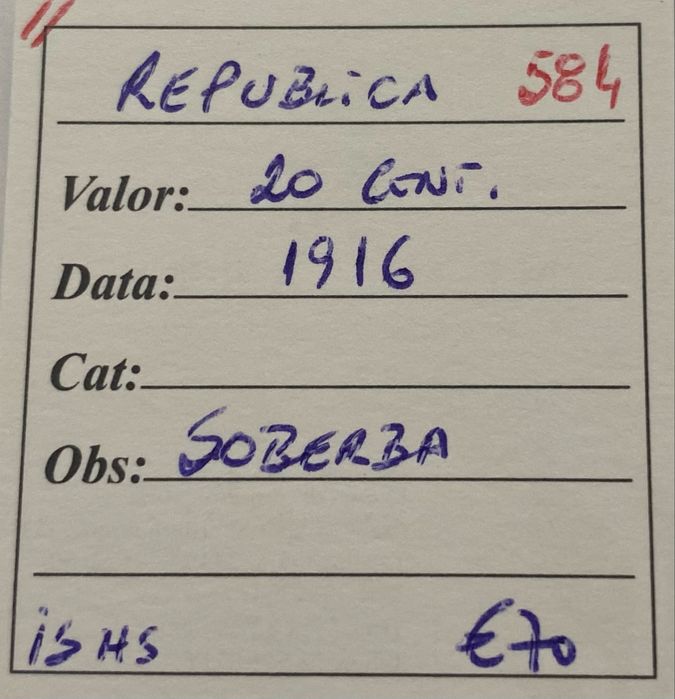 REPUBLICA 584
Valor: 20 CENT.
Data: 1916
Cat:
Obs: SOBERBA
iSHS €70